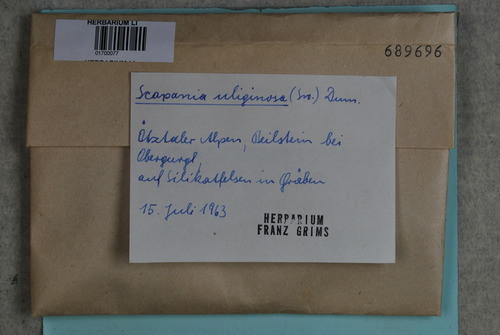 HERBARIUM LI
01700077
689696
Scapania uliginosa (Sw.) Dum.
Ötztaler Alpen, Beilstein bei
Obergurgl,
auf Silikatfelsen in Gräben
15. Juli 1963
HERBARIUM
FRANZ GRIMS